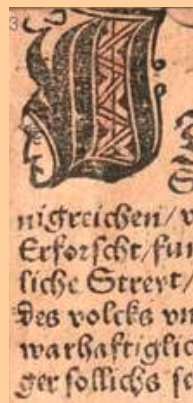 3
nigreichen/
Erforscht/
liche Streyt/
des volcks
warhafftiglic
ger sollichs se